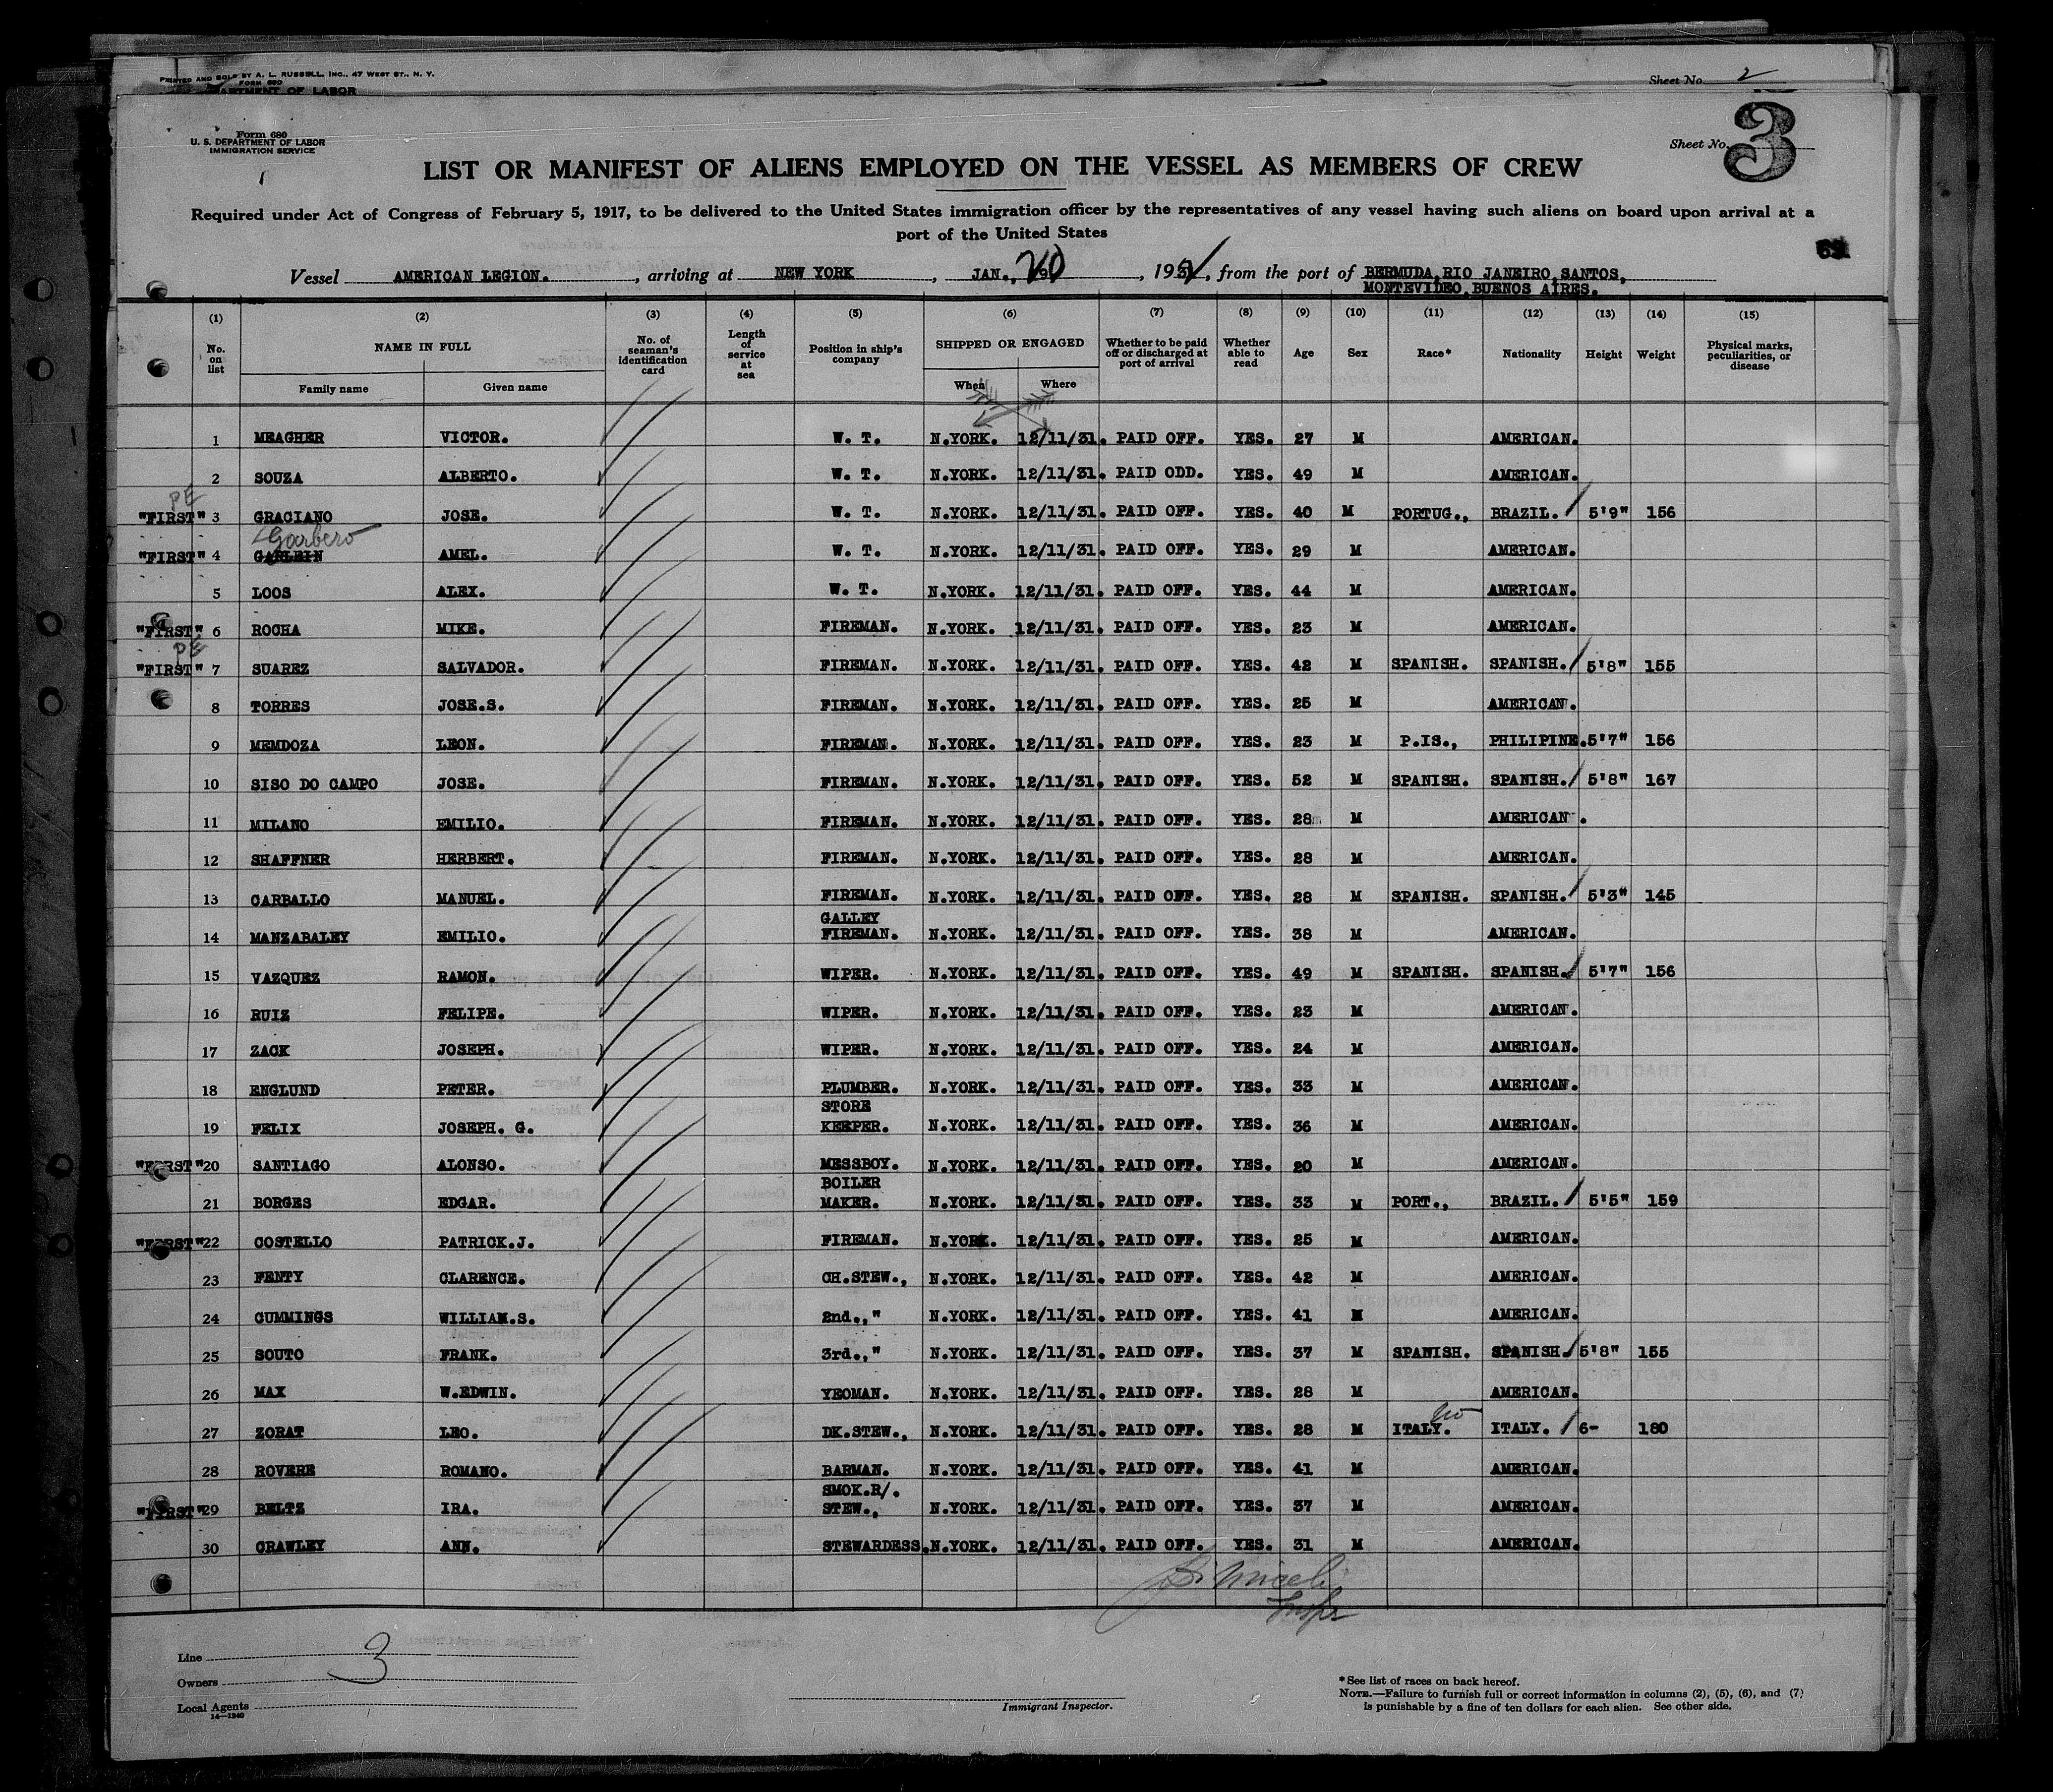 PRINTED AND SOLD BY A. L. RUSSELL, INC., 47 WEST ST., N. Y.
FORM 680
DEPARTMENT OF LABOR
Sheet No. 2
Form 680
U. S. DEPARTMENT OF LABOR
IMMIGRATION SERVICE
Sheet No. 3
LIST OR MANIFEST OF ALIENS EMPLOYED ON THE VESSEL AS MEMBERS OF CREW
Required under Act of Congress of February 5, 1917, to be delivered to the United States immigration officer by the representatives of any vessel having such aliens on board upon arrival at a
port of the United States
Vessel AMERICAN LEGION. , arriving at NEW YORK , JAN., 20 , 193 , from the port of BERMUDA, RIO JANEIRO, SANTOS,
MONTEVIDEO, BUENOS AIRES.
(1) (2) (3) (4) (5) (6) (7) (8) (9) (10) (11) (12) (13) (14) (15)
No. on list NAME IN FULL No. of seaman's identification card Length of service at sea Position in ship's company SHIPPED OR ENGAGED Whether to be paid off or discharged at port of arrival Whether able to read Age Sex Race* Nationality Height Weight Physical marks, peculiarities, or disease
Family name Given name When Where
1 MEAGHER VICTOR. W. T. N.YORK. 12/11/31. PAID OFF. YES. 27 M AMERICAN.
2 SOUZA ALBERTO. W. T. N.YORK. 12/11/31. PAID ODD. YES. 49 M AMERICAN.
PE
"FIRST" 3 GRACIANO JOSE. W. T. N.YORK. 12/11/31. PAID OFF. YES. 40 M PORTUG., BRAZIL. 5'9" 156
Garbero
"FIRST" 4 GARLEIN AMEL. W. T. N.YORK. 12/11/31. PAID OFF. YES. 29 M AMERICAN.
5 LOOS ALEX. W. T. N.YORK. 12/11/31. PAID OFF. YES. 44 M AMERICAN.
"FIRST" 6 ROCHA MIKE. FIREMAN. N.YORK. 12/11/31. PAID OFF. YES. 23 M AMERICAN.
PE
"FIRST" 7 SUAREZ SALVADOR. FIREMAN. N.YORK. 12/11/31. PAID OFF. YES. 42 M SPANISH. SPANISH. 5'8" 155
8 TORRES JOSE.S. FIREMAN. N.YORK. 12/11/31. PAID OFF. YES. 25 M AMERICAN.
9 MEMDOZA LEON. FIREMAN. N.YORK. 12/11/31. PAID OFF. YES. 23 M P.IS., PHILIPINE. 5'7" 156
10 SISO DO CAMPO JOSE. FIREMAN. N.YORK. 12/11/31. PAID OFF. YES. 52 M SPANISH. SPANISH. 5'8" 167
11 MILANO EMILIO. FIREMAN. N.YORK. 12/11/31. PAID OFF. YES. 28 M AMERICAN .
12 SHAFFNER HERBERT. FIREMAN. N.YORK. 12/11/31. PAID OFF. YES. 28 M AMERICAN.
13 CARBALLO MANUEL. FIREMAN. N.YORK. 12/11/31. PAID OFF. YES. 28 M SPANISH. SPANISH. 5'3" 145
GALLEY
14 MANZABALEY EMILIO. FIREMAN. N.YORK. 12/11/31. PAID OFF. YES. 38 M AMERICAN.
15 VAZQUEZ RAMON. WIPER. N.YORK. 12/11/31. PAID OFF. YES. 49 M SPANISH. SPANISH. 5'7" 156
16 RUIZ FELIPE. WIPER. N.YORK. 12/11/31. PAID OFF. YES. 23 M AMERICAN.
17 ZACK JOSEPH. WIPER. N.YORK. 12/11/31. PAID OFF. YES. 24 M AMERICAN.
18 ENGLUND PETER. PLUMBER. N.YORK. 12/11/31. PAID OFF. YES. 33 M AMERICAN.
STORE
19 FELIX JOSEPH. G. KEEPER. N.YORK. 12/11/31. PAID OFF. YES. 36 M AMERICAN.
"FIRST" 20 SANTIAGO ALONSO. MESSBOY. N.YORK. 12/11/31. PAID OFF. YES. 20 M AMERICAN.
BOILER
21 BORGES EDGAR. MAKER. N.YORK. 12/11/31. PAID OFF. YES. 33 M PORT., BRAZIL. 5'5" 159
"FIRST" 22 COSTELLO PATRICK.J. FIREMAN. N.YORK. 12/11/31. PAID OFF. YES. 25 M AMERICAN.
23 FENTY CLARENCE. CH.STEW., N.YORK. 12/11/31. PAID OFF. YES. 42 M AMERICAN.
24 CUMMINGS WILLIAM.S. 2nd.," N.YORK. 12/11/31. PAID OFF. YES. 41 M AMERICAN.
25 SOUTO FRANK. 3rd.," N.YORK. 12/11/31. PAID OFF. YES. 37 M SPANISH. SPANISH. 5'8" 155
26 MAX W.EDWIN. YEOMAN. N.YORK. 12/11/31. PAID OFF. YES. 28 M AMERICAN.
27 ZORAT LEO. DK.STEW., N.YORK. 12/11/31. PAID OFF. YES. 28 M ITALY. ITALY. 6- 180
28 ROVERE ROMANO. BARMAN. N.YORK. 12/11/31. PAID OFF. YES. 41 M AMERICAN.
SMOK.R/.
"FIRST" 29 BELTZ IRA. STEW., N.YORK. 12/11/31. PAID OFF. YES. 37 M AMERICAN.
30 CRAWLEY ANN. STEWARDESS. N.YORK. 12/11/31. PAID OFF. YES. 31 M AMERICAN.
Inspr
Line
Owners 3
Local Agents
14—1240
Immigrant Inspector.
*See list of races on back hereof.
NOTE.—Failure to furnish full or correct information in columns (2), (5), (6), and (7)
is punishable by a fine of ten dollars for each alien. See other side.